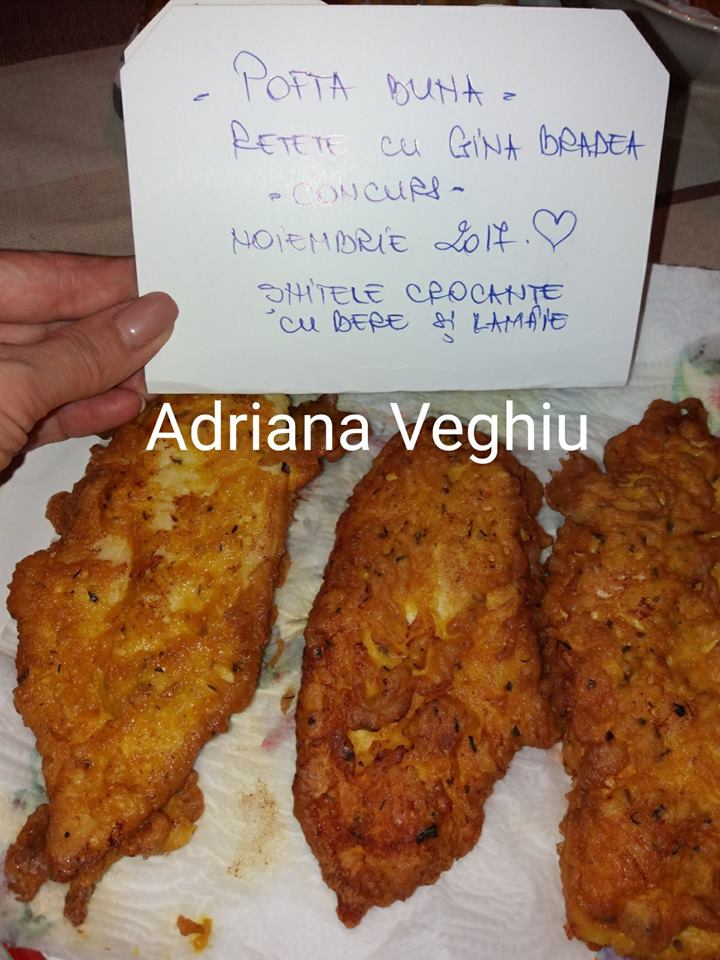 - POFTA BUNA -
RETETE CU GINA BRADEA
- CONCURS -
NOIEMBRIE 2017. ♡
ȘNITELE CROCANTE
CU BERE ȘI LAMÂIE
Adriana Veghiu